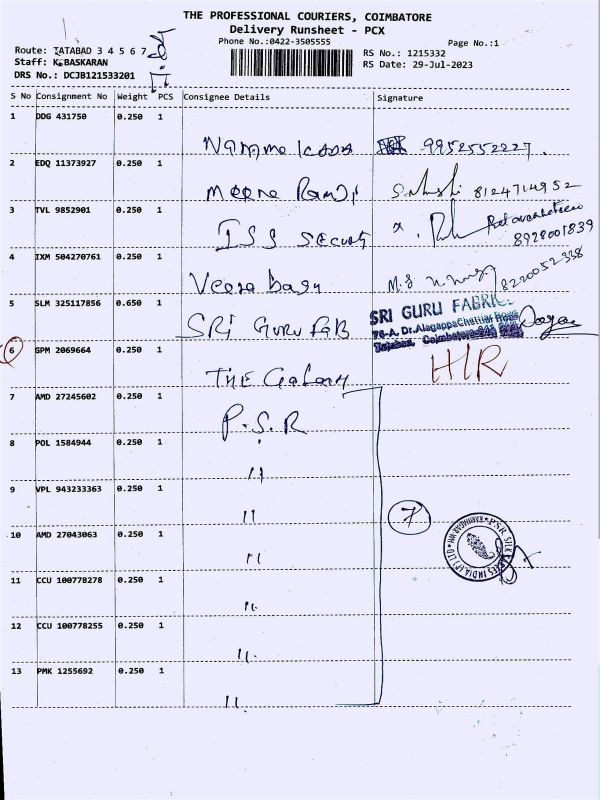 THE PROFESSIONAL COURIERS, COIMBATORE
Delivery Runsheet - PCX
Phone No.:0422-3505555
Page No.:1
Route: TATABAD 3 4 5 6 7
RS No.: 1215332
Staff: K.BASKARAN
RS Date: 29-Jul-2023
DRS No.: DCJB121533201
S No Consignment No Weight PCS Consignee Details Signature
1 DDG 431750 0.250 1
9952552227.
2 EDQ 11373927 0.250 1
Meena 8124714952
3 TVL 9852901 0.250 1
ISS Security
8928001839
4 IXM 504270761 0.250 1
Veera 8220052338
5 SLM 325117856 0.650 1
SRI GURU FAB
SRI GURU FABRIC
76-A, Dr.Alagappa Chettiar Road
Tatabad, Coimbatore-641
6 GPM 2069664 0.250 1
THE Galaxy
7 AMD 27245602 0.250 1
P.S.R
8 POL 1584944 0.250 1
"
9 VPL 943233363 0.250 1
"
7
10 AMD 27043063 0.250 1
"
PSR SILK SAREES INDIA (P) LTD
11 CCU 100778278 0.250 1
"
12 CCU 100778255 0.250 1
"
13 PMK 1255692 0.250 1
"